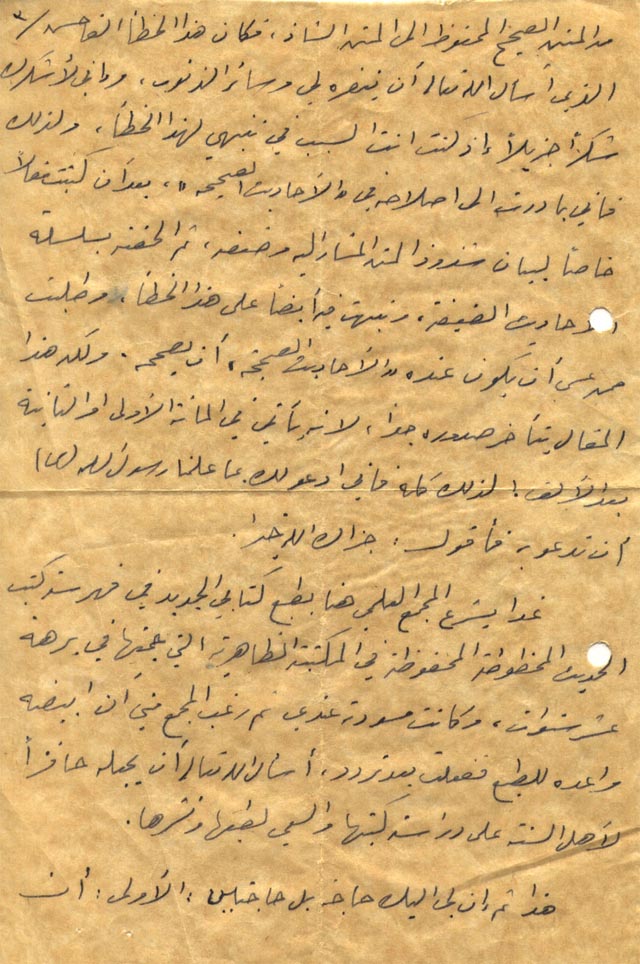 من المتن الصحيح المحفوظ الى المتن الشاذ، فكان هذا الخطأ الفاحش
الذي أسأل الله تعالى أن يغفره لي وسائر الذنوب، وإني لأشكرك
شكراً جزيلاً إذ كنت انت السبب في تنبهي لهذا الخطأ، ولذلك
فاني بادرت الى اصلاحه في «الأحاديث الصحيحة»، بعد أن كتبت مقالاً
خاصاً لبيان شذوذ المتن المشار اليه وضعفه، ثم ألحقته بسلسلة
الأحاديث الضعيفة، ونبهت فيه أيضاً على هذا الخطأ، وطلبت
ممن عسى أن يكون عنده «الأحاديث الصحيحة» أن يصححه. ولكن هذا
المقال يتأخر صدوره جداً، لانه يأتي في المائة الأولى او الثانية
بعد الألف! لذلك كله فاني ادعو لك بما علمنا رسول الله (ص)
أن ندعو به فأقول: جزاك الله خيرا.
غدا يشرع المجمع العلمي هنا بطبع كتابي الجديد في فهرست كتب
الحديث المخطوطة المحفوظة في المكتبة الظاهرية التي جمعتها في برهة
عشر سنوات، وكانت مسودة عندي ثم رغب المجمع مني أن ابيضه
واعده للطبع ففعلت بعد تردد، أسأل الله تعالى أن يجعله حافزاً
لأهل السنة على دراسة كتبها والسعي لطبعها ونشرها.
هذا ثم إن لي اليك حاجة بل حاجتين: الأولى: أن